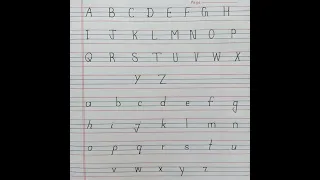 A B C D E F G H
I J K L M N O P
Q R S T U V W X
Y Z
a b c d e f g
h i j k l m n
o p q r s t u
v w x y z